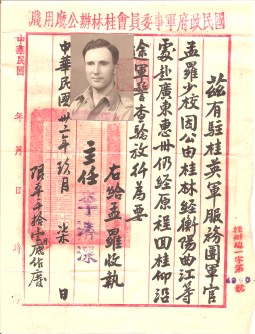 國民政府軍事委員會桂林辦公廳用箋
茲有駐桂英軍服務團軍官
孟羅少校因公由桂林經衡陽曲江等
處赴廣東惠州仍經原程回桂仰沿
途軍警查驗放行為要
右給孟羅收執
主任李濟深
中華民國卅二年 月 日
中華民國 年 月 日 時